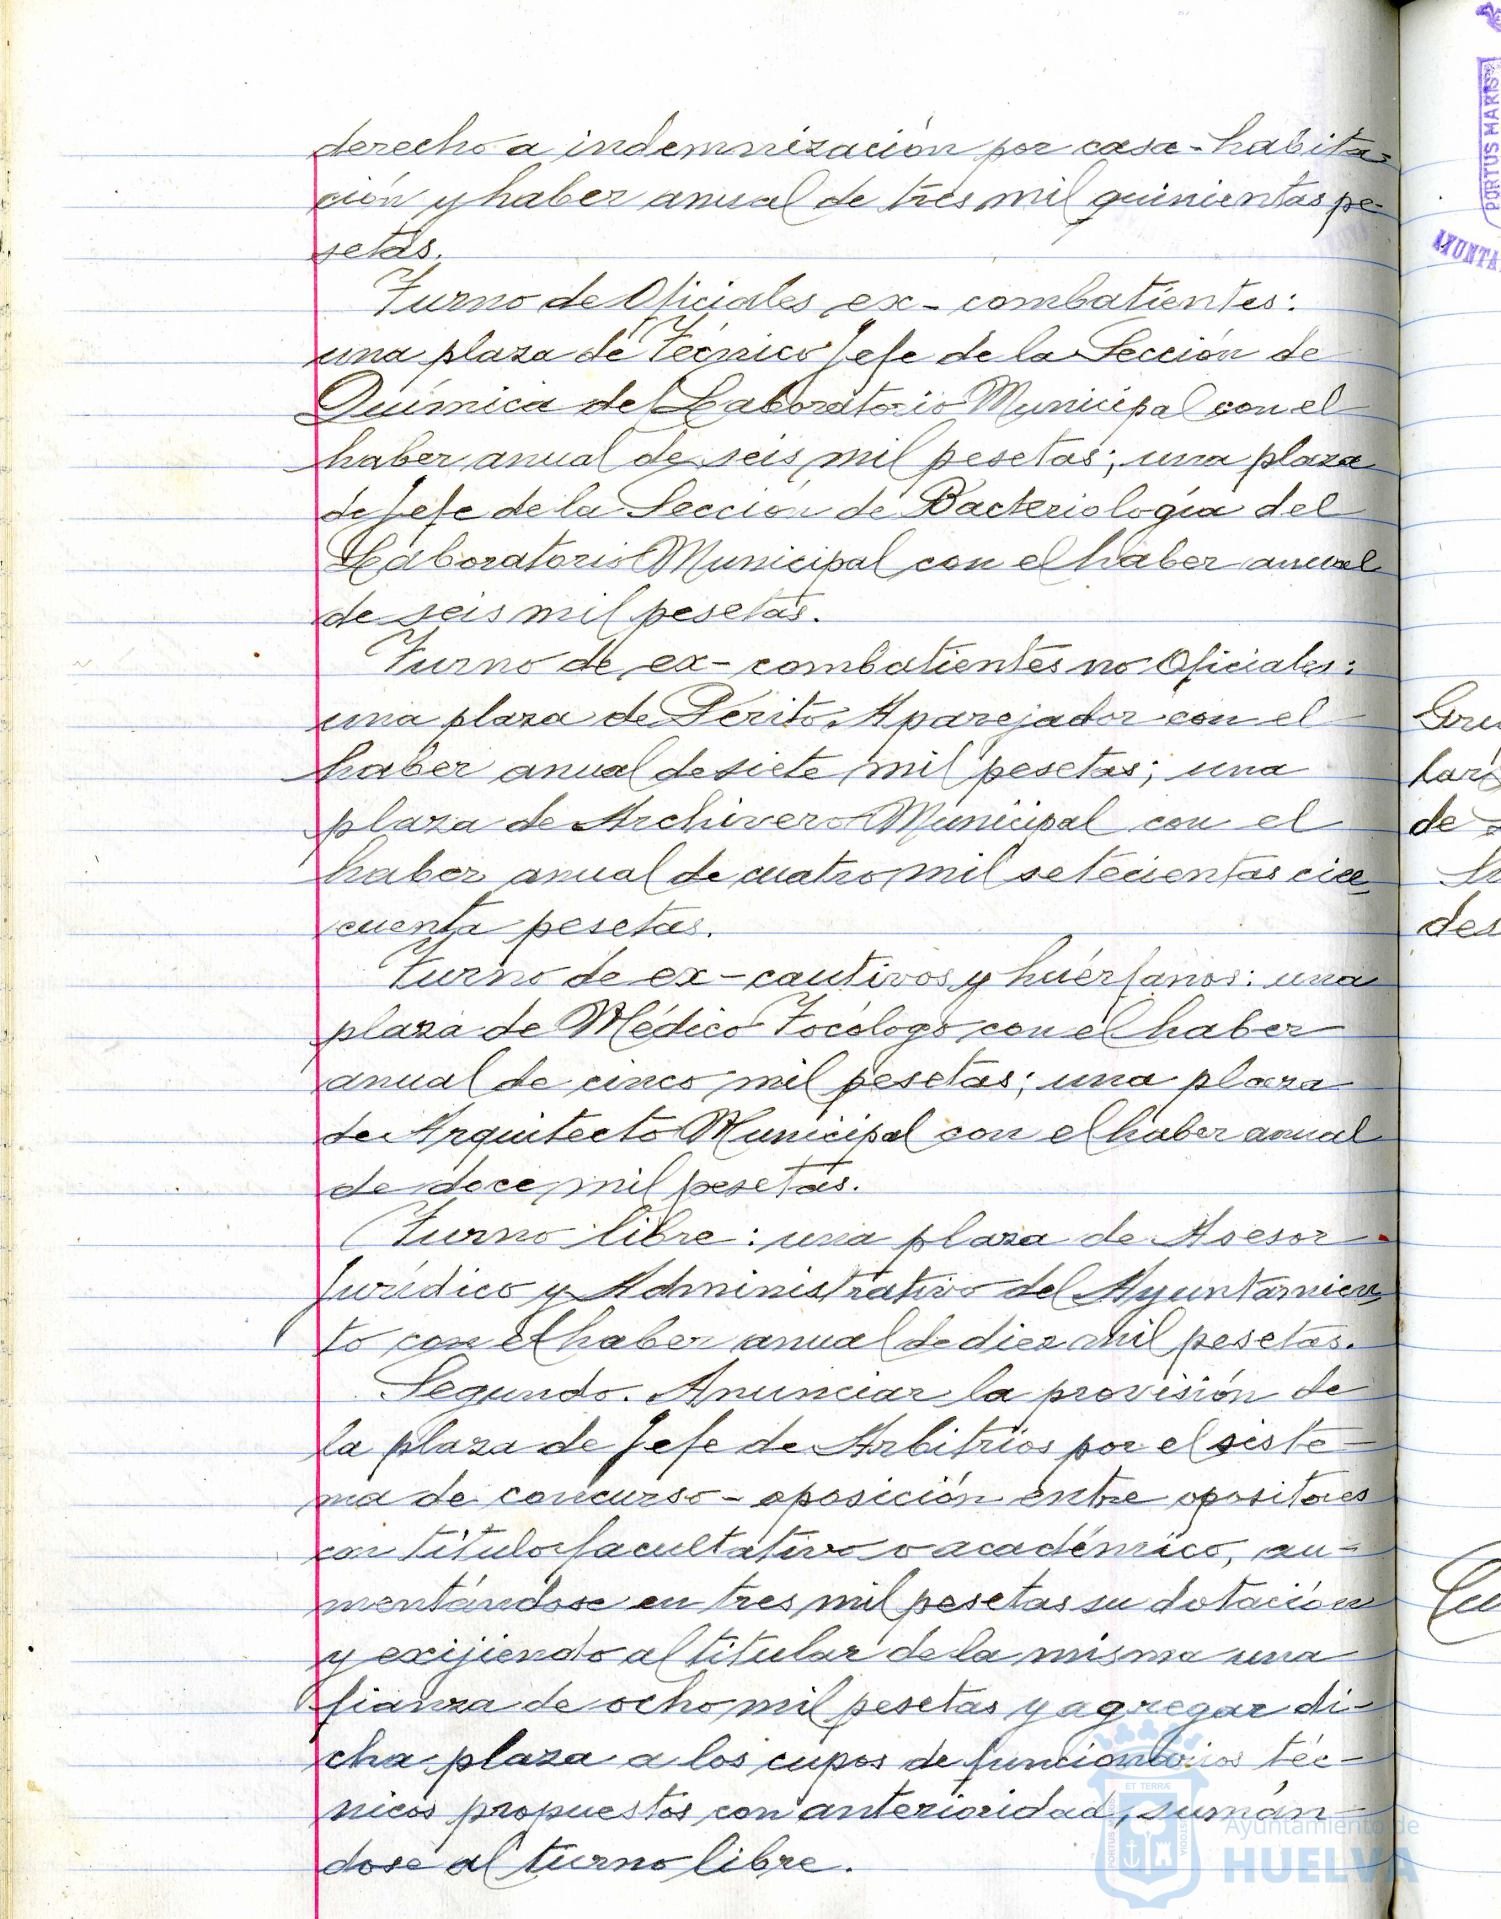 derecho a indemnización por casa-habita-
ción y haber anual de tres mil quinientas pe-
setas.
Turno de Oficiales ex-combatientes:
una plaza de Técnico Jefe de la Sección de
Química del Laboratorio Municipal con el
haber anual de seis mil pesetas; una plaza
de Jefe de la Sección de Bacteriología del
Laboratorio Municipal con el haber anual
de seis mil pesetas.
Turno de ex-combatientes no Oficiales:
una plaza de Perito Aparejador con el
haber anual de siete mil pesetas; una
plaza de Archivero Municipal con el
haber anual de cuatro mil setecientas cin-
cuenta pesetas.
Turno de ex-cautivos y huérfanos: una
plaza de Médico Tocólogo con el haber
anual de cinco mil pesetas; una plaza
de Arquitecto Municipal con el haber anual
de doce mil pesetas.
Turno libre: una plaza de Asesor
Jurídico y Administrativo del Ayuntamien-
to con el haber anual de diez mil pesetas.
Segundo. Anunciar la provisión de
la plaza de Jefe de Arbitrios por el siste-
ma de concurso-oposición entre opositores
con título facultativo o académico, au-
mentándose en tres mil pesetas su dotación
y exijiendo al titular de la misma una
fianza de ocho mil pesetas y agregar di-
cha plaza a los cupos de funcionarios téc-
nicos propuestos con anterioridad, sumán-
dose al turno libre.
PORTUS MARIS
AYUNTA
de
des
ET TERRÆ
Ayuntamiento de
HUELVA